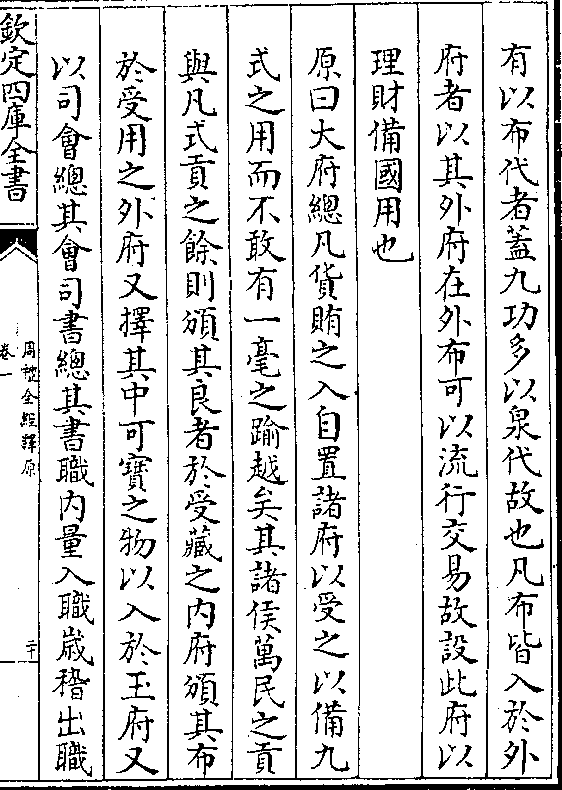 有以布代者蓋九功多以泉代故也凡布皆入於外
府者以其外府在外布可以流行交易故設此府以
理財備國用也
原曰大府總凡貨賄之入自置諸府以受之以備九
式之用而不敢有一毫之踰越矣其諸侯萬民之貢
與凡式貢之餘則頒其良者於受藏之内府頒其布
於受用之外府又擇其中可寶之物以入於玉府又
以司會總其會司書總其書職内量入職歳稽出職
欽定四庫全書
周禮全經釋原
卷一
二十